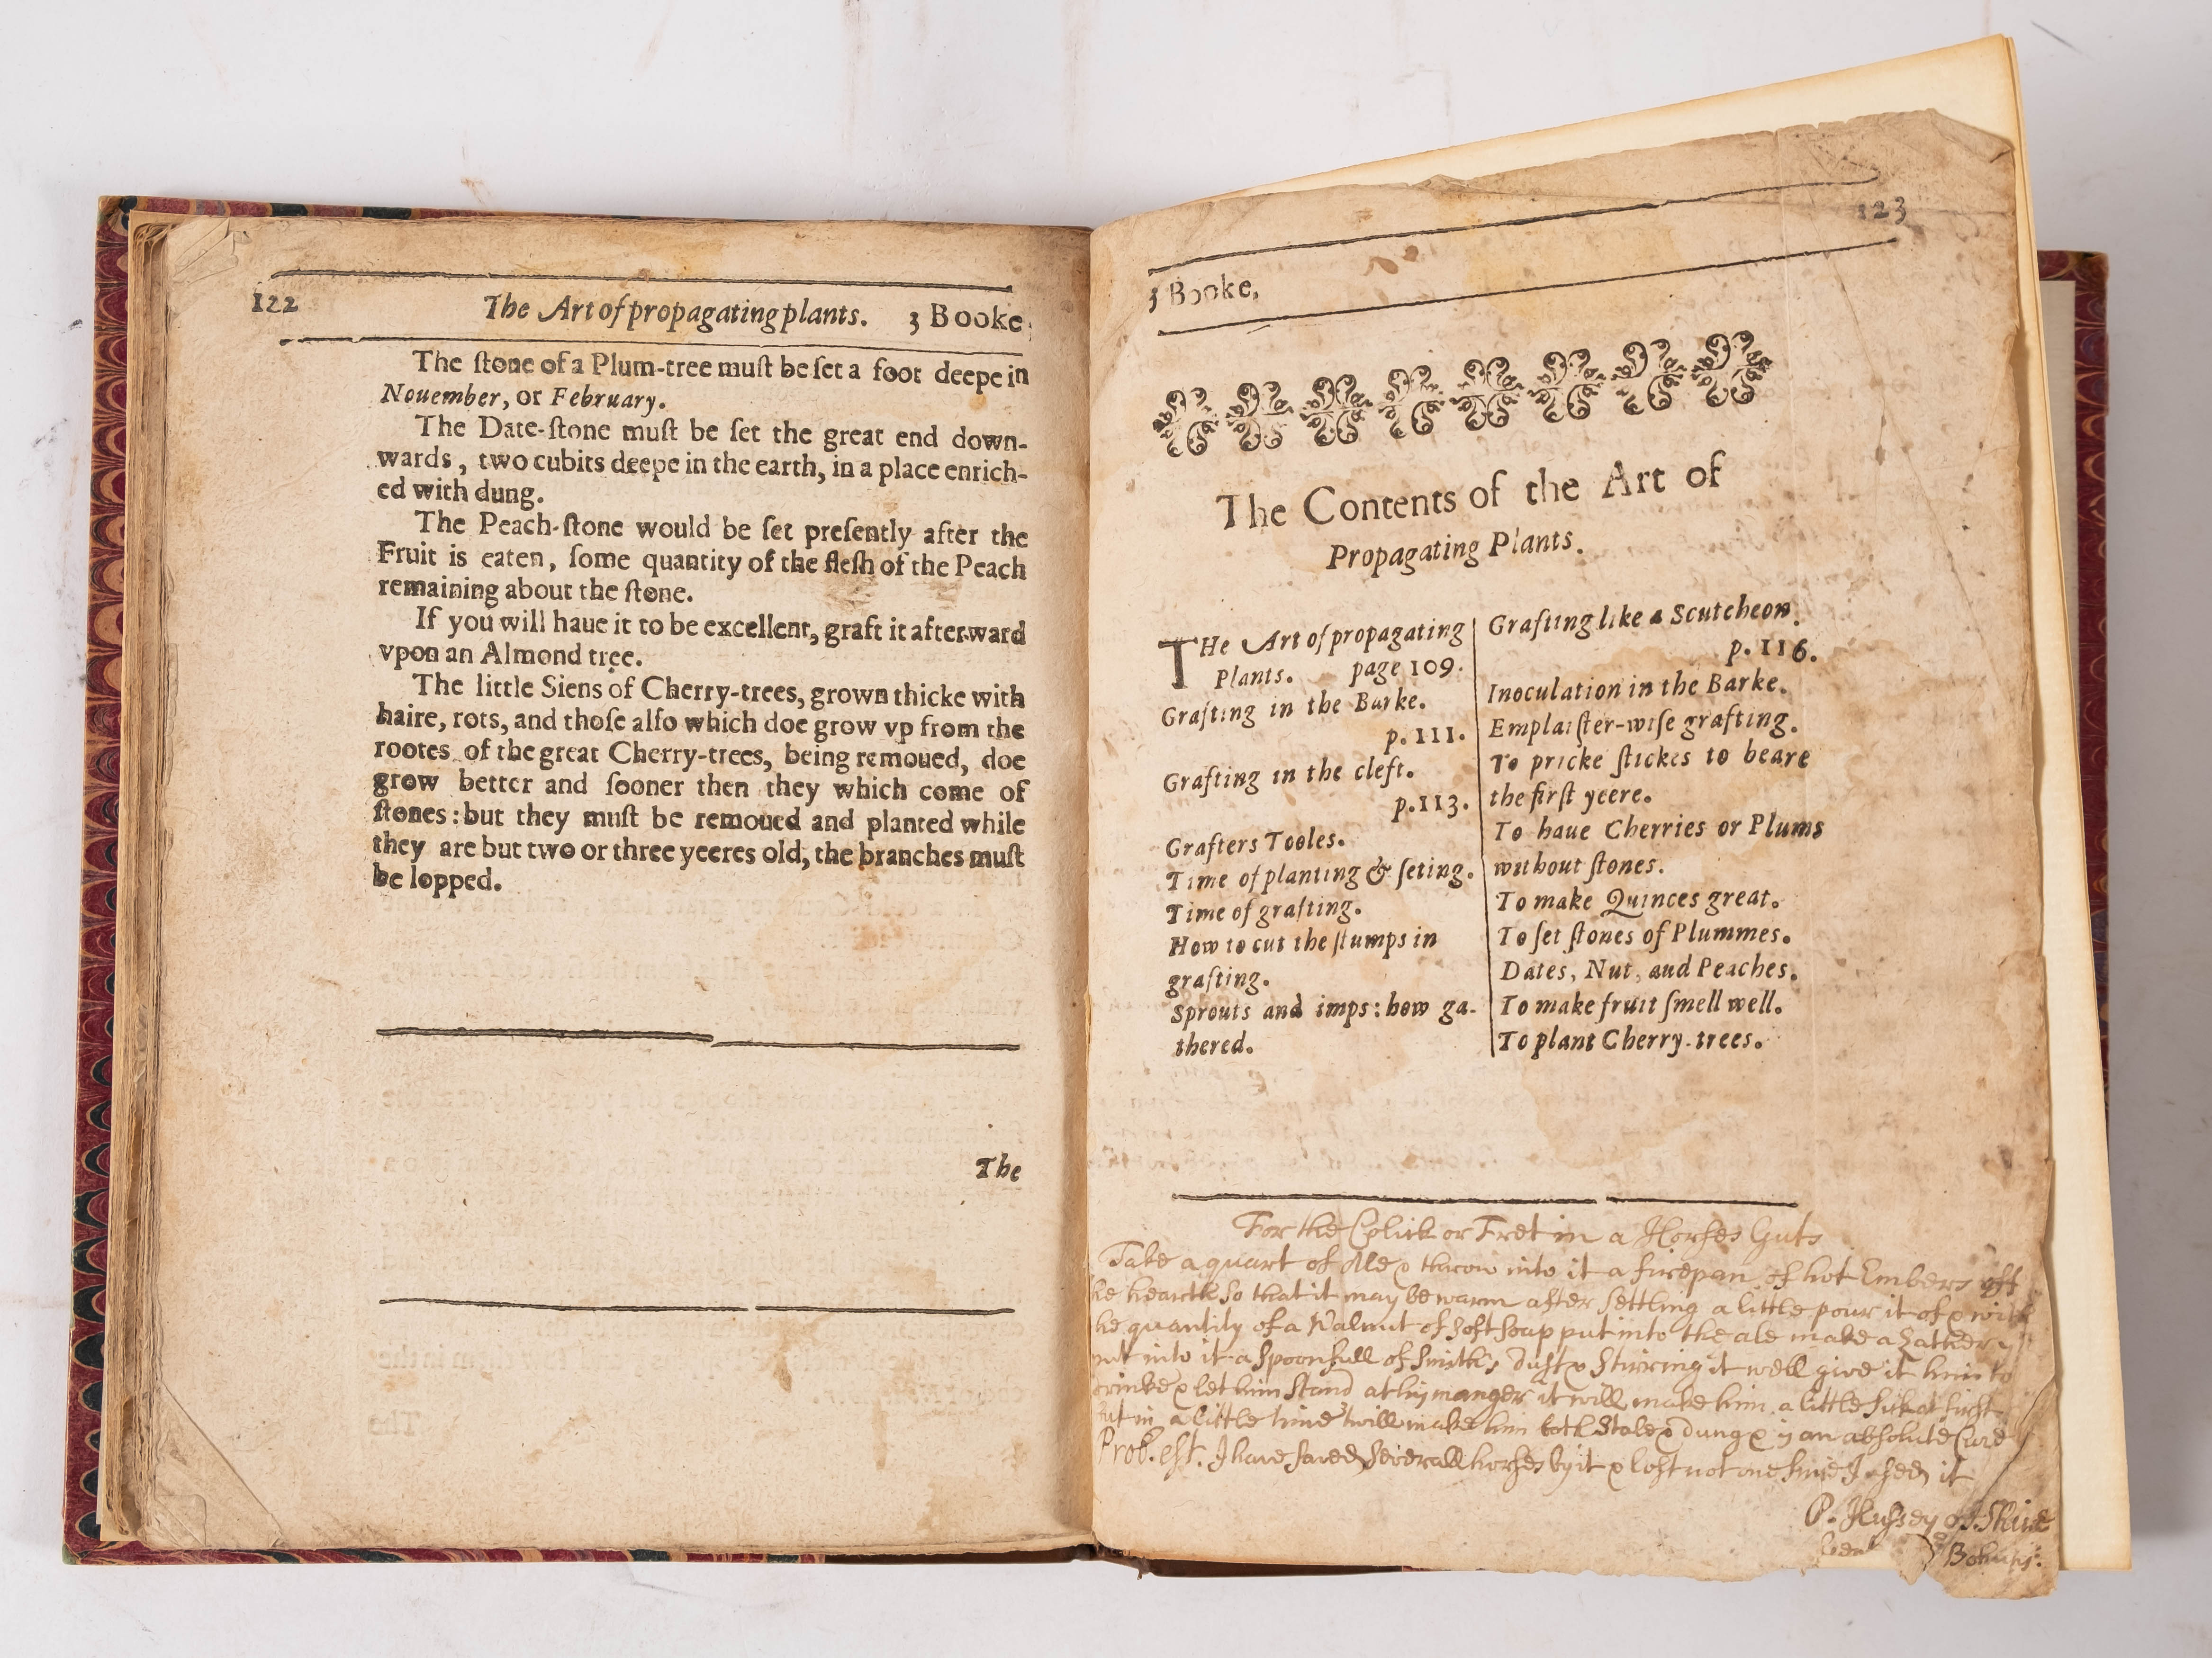 122 The Art of propagating plants. 3 Booke.
The ſtone of a Plum-tree muſt be ſet a foot deepe in
Nouember, or February.
The Date-ſtone muſt be ſet the great end down-
wards, two cubits deepe in the earth, in a place enrich-
ed with dung.
The Peach-ſtone would be ſet preſently after the
Fruit is eaten, ſome quantity of the fleſh of the Peach
remaining about the ſtone.
If you will haue it to be excellent, graft it afterward
vpon an Almond tree.
The little Siens of Cherry-trees, grown thicke with
haire, rots, and thoſe alſo which doe grow vp from the
rootes of the great Cherry-trees, being remoued, doe
grow better and ſooner then they which come of
ſtones: but they muſt be remoued and planted while
they are but two or three yeeres old, the branches muſt
be lopped.
The
123
3 Booke,
The Contents of the Art of
Propagating Plants.
THe Art of propagating
Plants. page 109.
Grafting in the Barke.
p. 111.
Grafting in the cleft.
p. 113.
Grafters Tooles.
Time of planting & ſeting.
Time of grafting.
How to cut the ſtumps in
grafting.
Sprouts and imps: how ga-
thered.
Grafting like a Scutcheon.
p. 116.
Inoculation in the Barke.
Emplaiſter-wiſe grafting.
To pricke ſtickes to beare
the firſt yeere.
To haue Cherries or Plums
without ſtones.
To make Quinces great.
To ſet ſtones of Plummes.
Dates, Nut, and Peaches.
To make fruit ſmell well.
To plant Cherry-trees.
For the Colick or Fret in a Horſes Guts
Take a quart of Ale & throw into it a firepan of hot Embers off
he hearth So that it may be warm after Settling a little pour it of & with
he quantity of a Walnut of Soft Soap put into the ale make a Lather &
put into it a Spoonfull of Smith's Duſt & Stirring it well give it him to
drinke & let him Stand at his manger it will make him a little Sick at firſt
but in a little time 'twill make him both Stale & dung & is an abſolute Cure
Prob. eſt. I have Saved Severall horſes by it & loſt not one Since I uſed it
P. Huſſey of